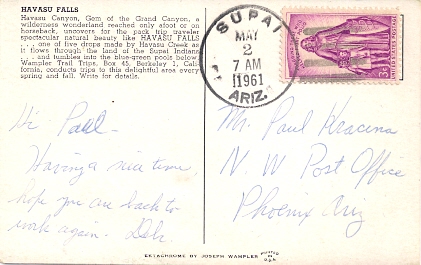 HAVASU FALLS
Havasu Canyon, Gem of the Grand Canyon, a
wilderness wonderland reached only afoot or on
horseback, uncovers for the pack trip traveler
spectacular natural beauty like HAVASU FALLS
. . . one of five drops made by Havasu Creek as
it flows through the land of the Supai Indians
. . . and tumbles into the blue-green pools below.
Wampler Trail Trips, Box 45, Berkeley 1, Cali-
fornia, conducts trips to this delightful area every
spring and fall. Write for details.
Hi Paul -
Having a nice time,
hope you are back to
work again. Deb.
SUPAI
MAY
2
7 AM
1961
ARIZ.
3¢
Mr. Paul Kracina
N. W Post Office
Phoenix Ariz
EKTACHROME BY JOSEPH WAMPLER
PRINTED IN
U.S.A.